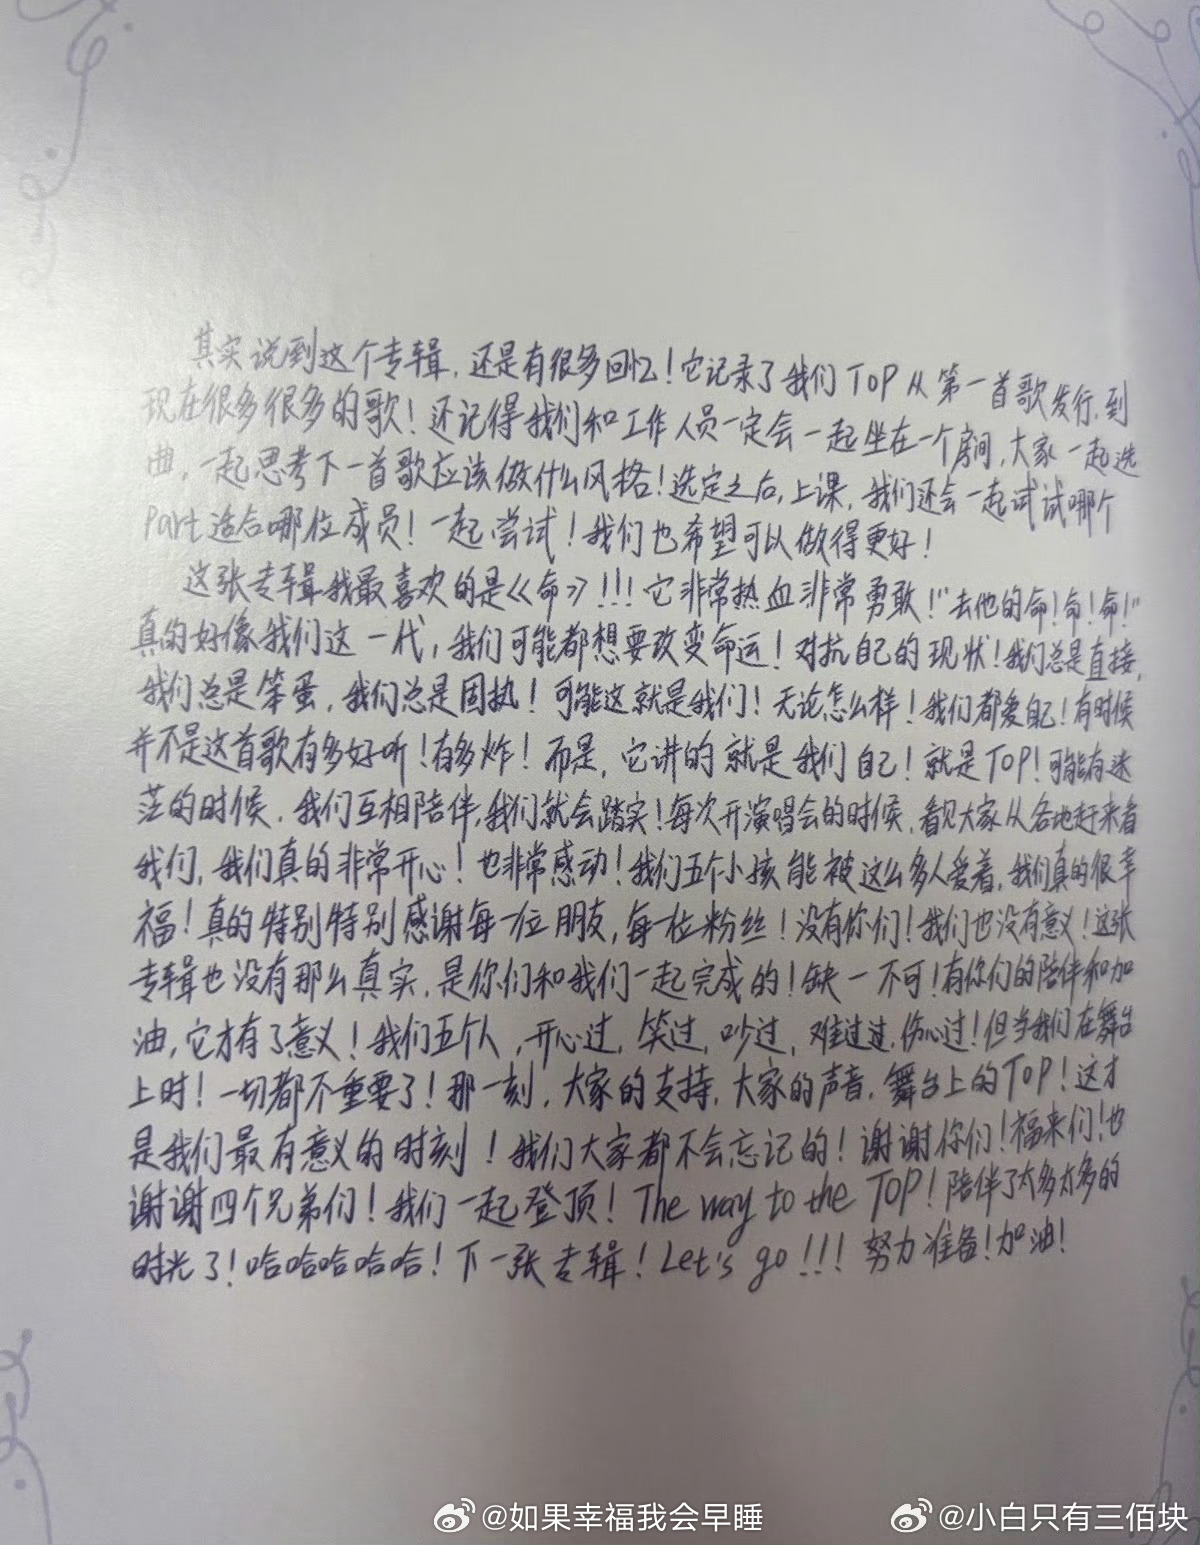 其实说到这个专辑,还是有很多回忆!它记录了我们TOP从第一首歌发行,到
现在很多很多的歌!还记得我们和工作人员一定会一起坐在一个房间,大家一起选
曲,一起思考下一首歌应该做什么风格!选定之后,上课,我们还会一起试试哪个
Part适合哪位成员!一起尝试!我们也希望可以做得更好!
这张专辑我最喜欢的是《命》!!!它非常热血非常勇敢!"去他的命!命!命!"
真的好像我们这一代,我们可能都想要改变命运!对抗自己的现状!我们总是直接,
我们总是笨蛋,我们总是固执!可能这就是我们!无论怎么样!我们都爱自己!有时候
并不是这首歌有多好听!有多炸!而是,它讲的就是我们自己!就是TOP!可能有迷
茫的时候,我们互相陪伴,我们就会踏实!每次开演唱会的时候,看见大家从各地赶来看
我们,我们真的非常开心!也非常感动!我们五个小孩能被这么多人爱着,我们真的很幸
福!真的特别特别感谢每一位朋友,每一位粉丝!没有你们!我们也没有意义!这张
专辑也没有那么真实,是你们和我们一起完成的!缺一不可!有你们的陪伴和加
油,它才有了意义!我们五个人,开心过,笑过,吵过,难过过,伤心过!但当我们在舞台
上时!一切都不重要了!那一刻,大家的支持,大家的声音,舞台上的TOP!这才
是我们最有意义的时刻!我们大家都不会忘记的!谢谢你们!福来们!也
谢谢四个兄弟们!我们一起登顶!The way to the TOP!陪伴了太多太多的
时光了!哈哈哈哈哈!下一张专辑!Let's go!!!努力准备!加油!
@如果幸福我会早睡
@小白只有三佰块